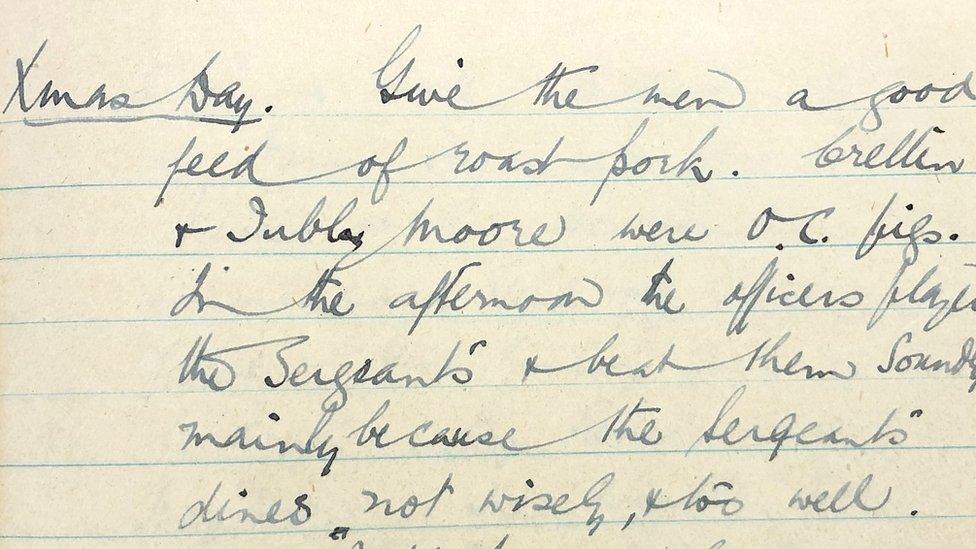 Xmas Day. Give the men a good
feed of roast pork. Crellin
& Tubby Moore were O.C. pigs.
In the afternoon the officers played
the Sergeants & beat them soundly
mainly because the Sergeants
dined not wisely, & too well.